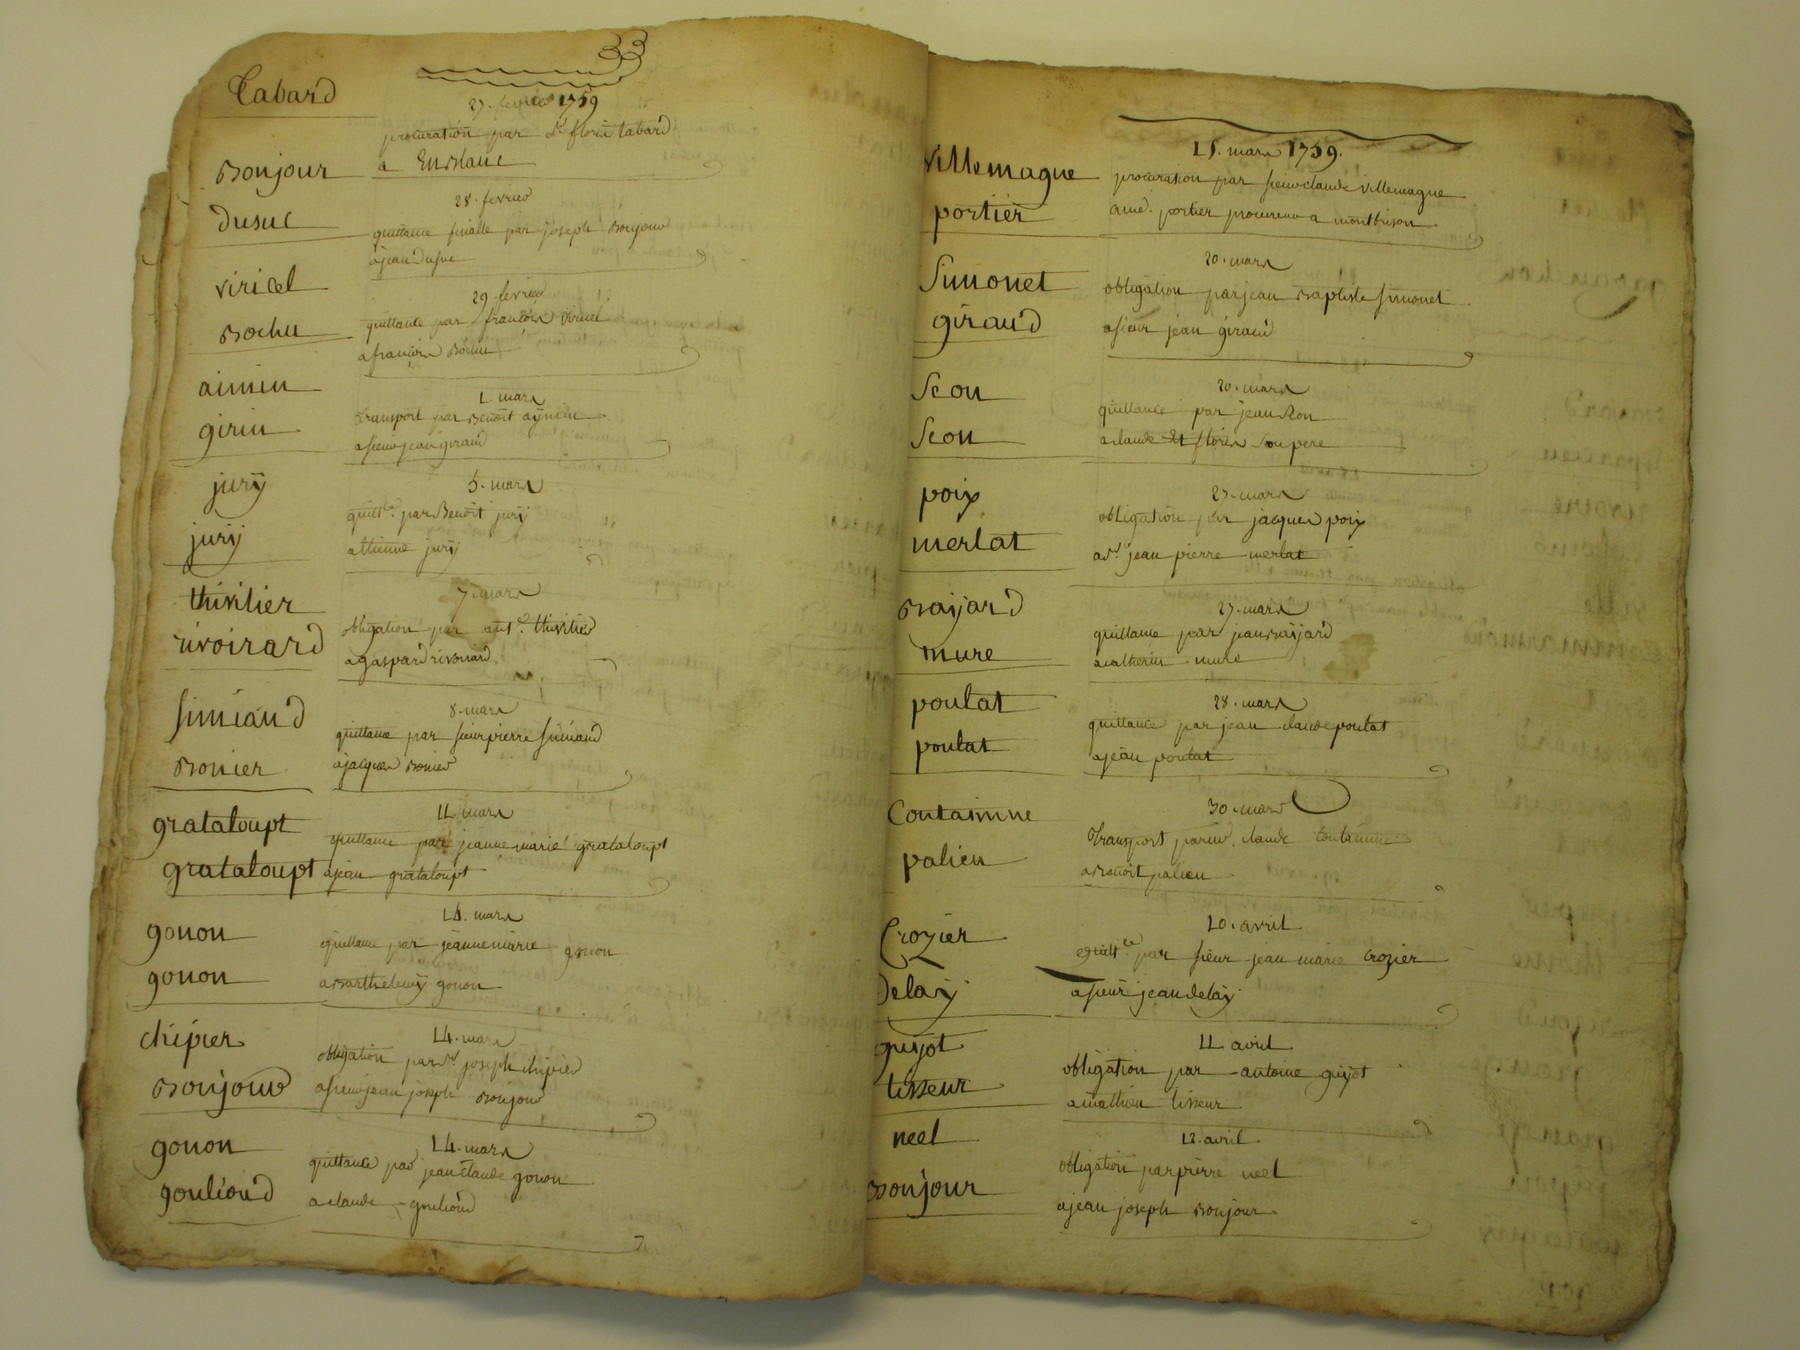 Tabard
27. fevrier 1759
procuration par dlle florie tabard
a En blanc
Bonjour
Dusuc
28. fevrier
quittance finalle par joseph Bonjour
a jean Dusuc
viricel
Bochu
29. fevrier
quittance par francois viricel
a francois Bochu
aimin
girin
1. mars
transport par Benoît aymin
a sieur jean giraud
jurÿ
jurÿ
5. mars
quitt.ce par Benoît jurÿ
a ttienne jurÿ
thivilier
rivoirard
7. mars
obligation par ant.e thivilier
a gaspard rivoirard
Simeand
Bonier
8. mars
quittance par sieur pierre Simeand
a jacques Bonier
grataloupt
grataloupt
11 mars
quittance par jeanne marie grataloupt
a jean grataloupt
gonon
gonon
14. mars
quittance par jeanne marie gonon
a Barthelemÿ gonon
chipier
Bonjour
14. mars
obligation par sr. joseph chipier
a sieur jean joseph Bonjour
gonon
gouliond
14. mars
quittance par jean claude gonon
a claude gouliond
villemagne
portier
15. mars 1759.
procuration par sieur claude villemagne
a me. portier procureur a montbrison
Simonet
giraud
20. mars
obligation par jean Baptiste Simonet
a sieur jean giraud
Seon
Seon
20. mars
quittance par jean Seon
a claude et florie Son pere
poix
merlat
27. mars
obligation par jacques poix
a sr. jean pierre merlat
Bayjard
mure
27. mars
quittance par jean Bayjard
a catherin mure
poulat
poulat
28. mars
quittance par jean claude poulat
a jean poulat
Contamine
palien
30. mars
transport par claude Contamine
a Benoit palien
Crozier
Delaÿ
10. avril
quitt.ce par sieur jean marie Crozier
a sieur jean delaÿ
guÿot
tisseur
11 avril
obligation par antoine guÿot
a mathieu tisseur
neel
Bonjour
12. avril
obligation par pierre neel
a jean joseph Bonjour